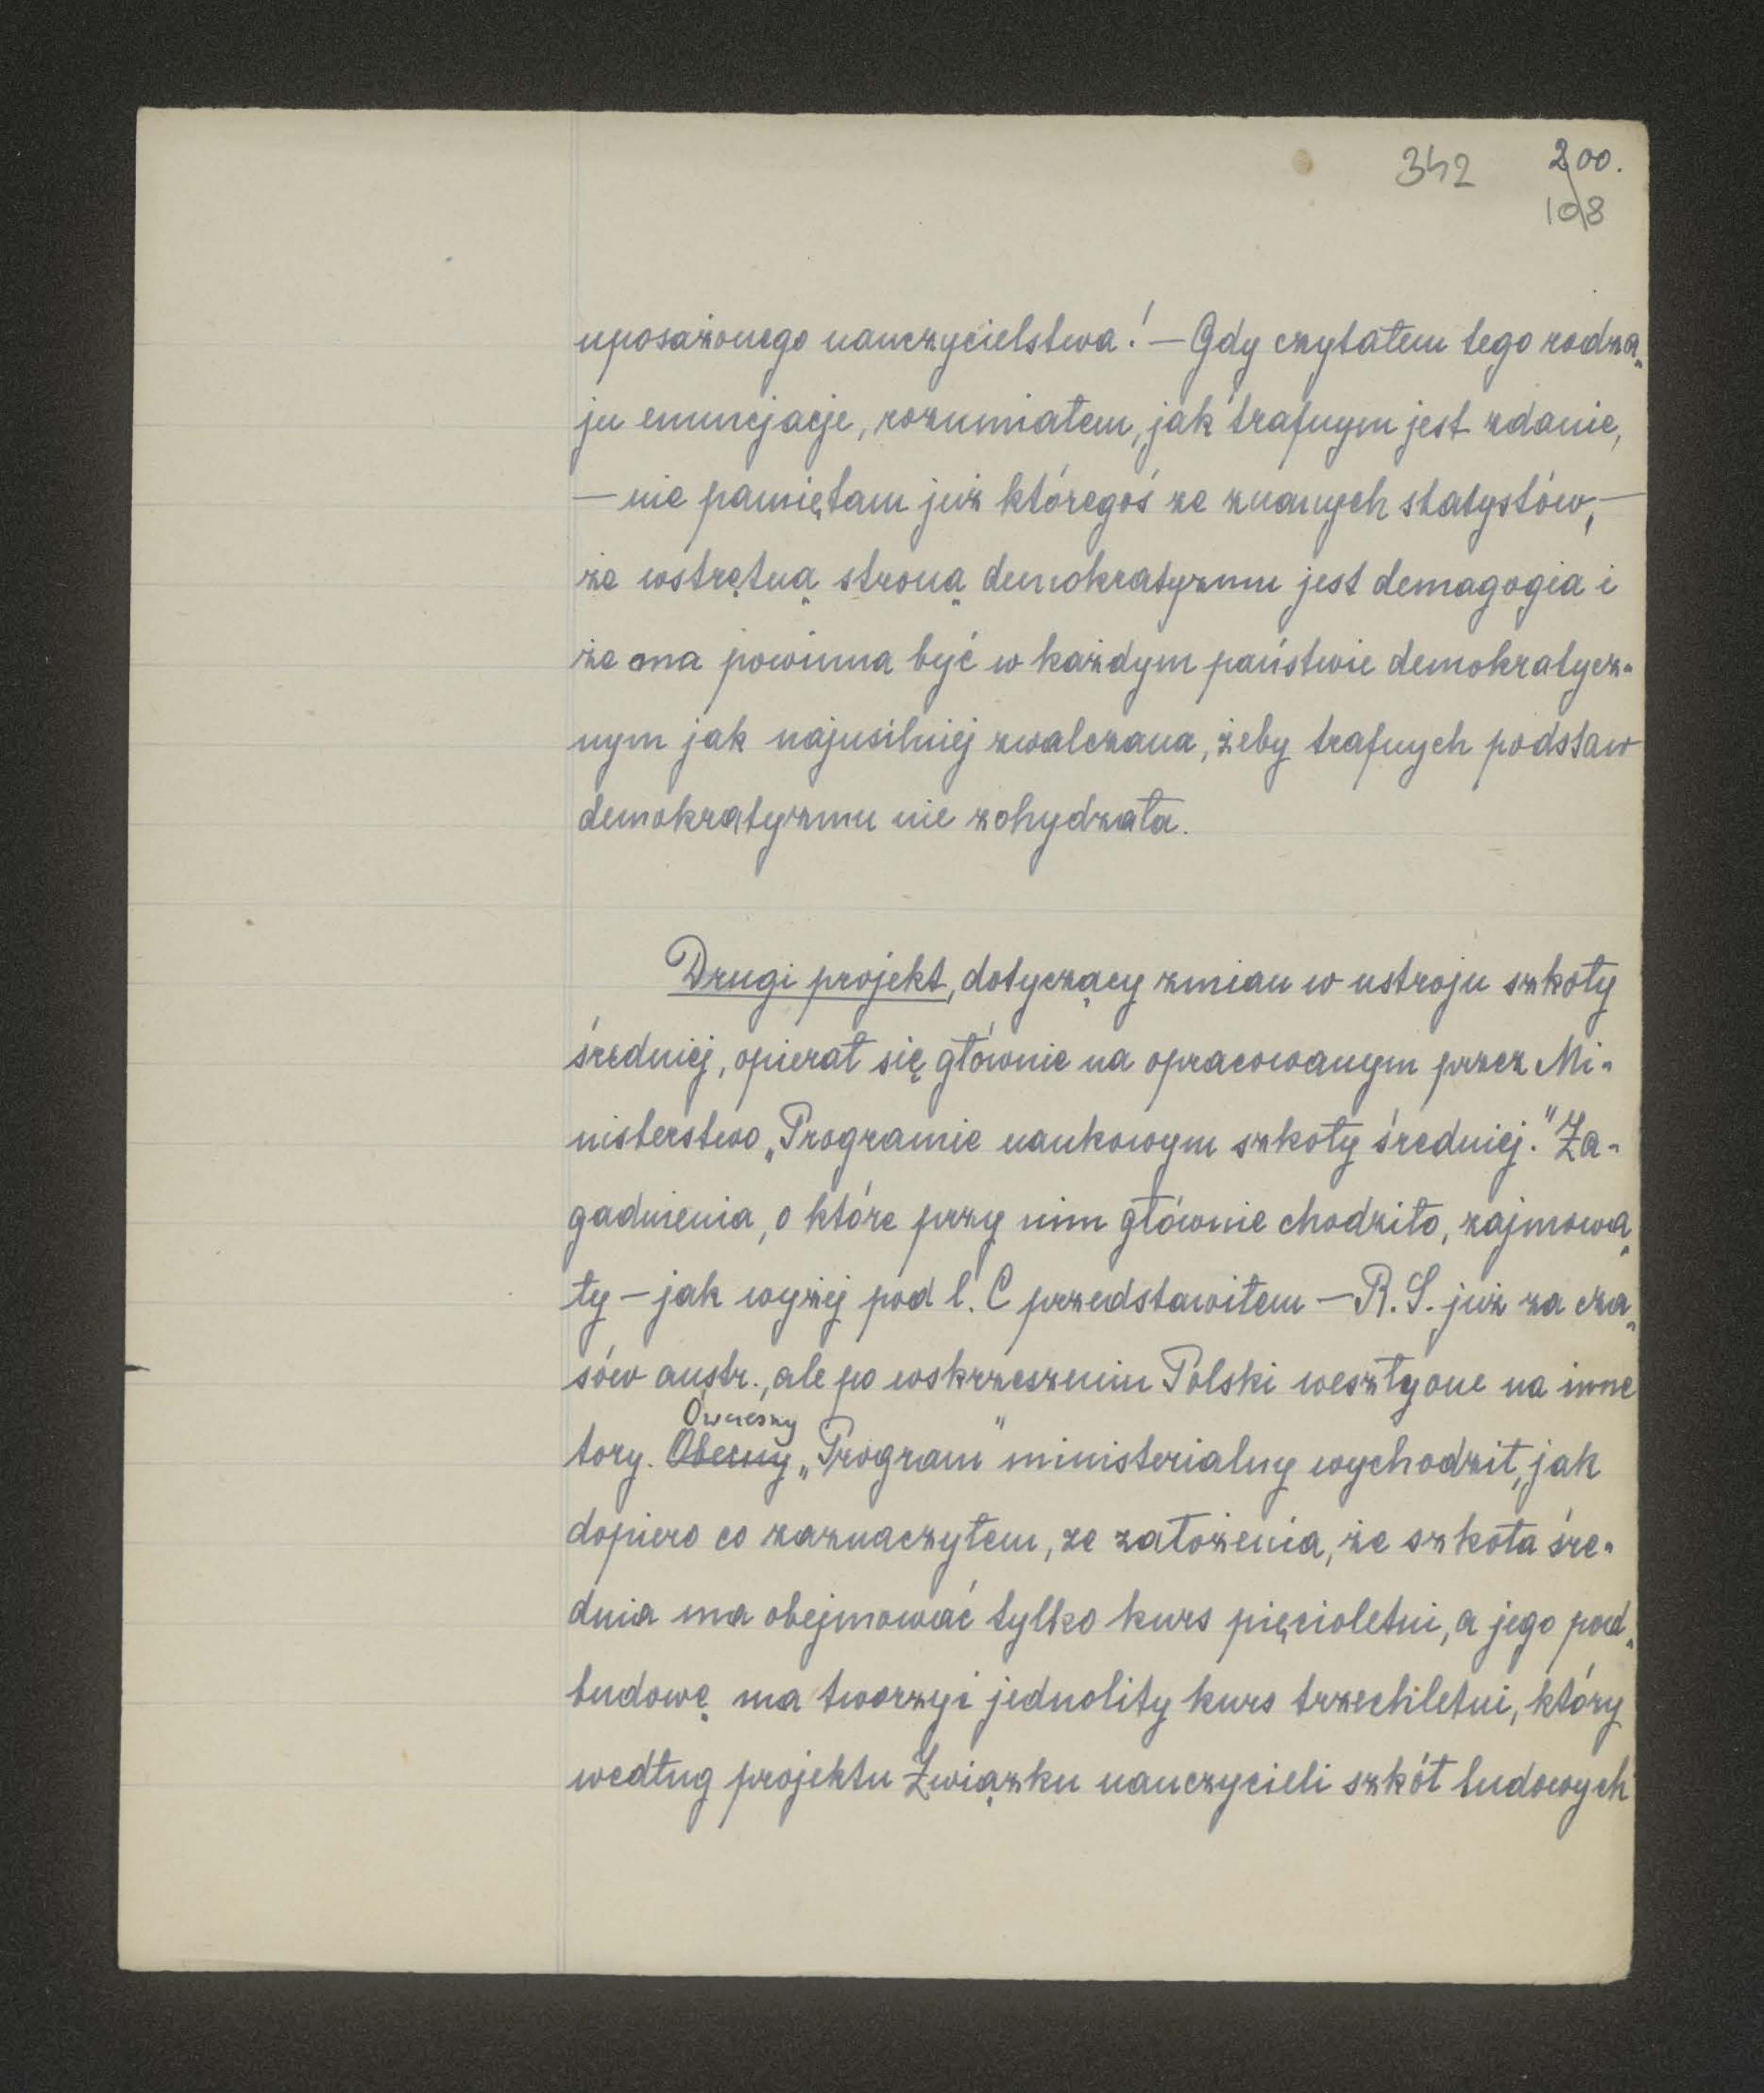 342 200.
108
uposażonego nauczycielstwa! — Gdy czytałem tego rodza-
ju enuncjacje, rozumiałem, jak trafnym jest zdanie,
— nie pamiętam już któregoś ze znanych statystów, —
że wstrętną stroną demokratyzmu jest demagogia i
że ona powinna być w każdym państwie demokratycz-
nym jak najusilniej zwalczana, żeby trafnych podstaw
demokratyzmu nie zohydzała.
Drugi projekt, dotyczący zmian w ustroju szkoły
średniej, opierał się głównie na opracowanym przez Mi-
nisterstwo „Programie naukowym szkoły średniej.” Za-
gadnienia, o które przy nim głównie chodziło, zajmowa-
ły — jak wyżej pod l. C przedstawiłem — R. S. już za cza-
sów austr., ale po wskrzeszeniu Polski weszły one na inne
Ówczesny
tory. Obecny „Program” ministerialny wychodził, jak
dopiero co zaznaczyłem, ze założenia, że szkoła śre-
dnia ma obejmować tylko kurs pięcioletni, a jego pod-
budowę ma tworzyć jednolity kurs trzechletni, który
według projektu Związku nauczycieli szkół ludowych